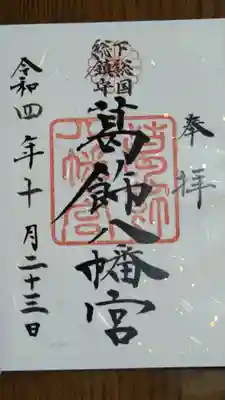 奉拝
下総国
総鎮守
葛飾八幡宮
令和四年十月二十三日